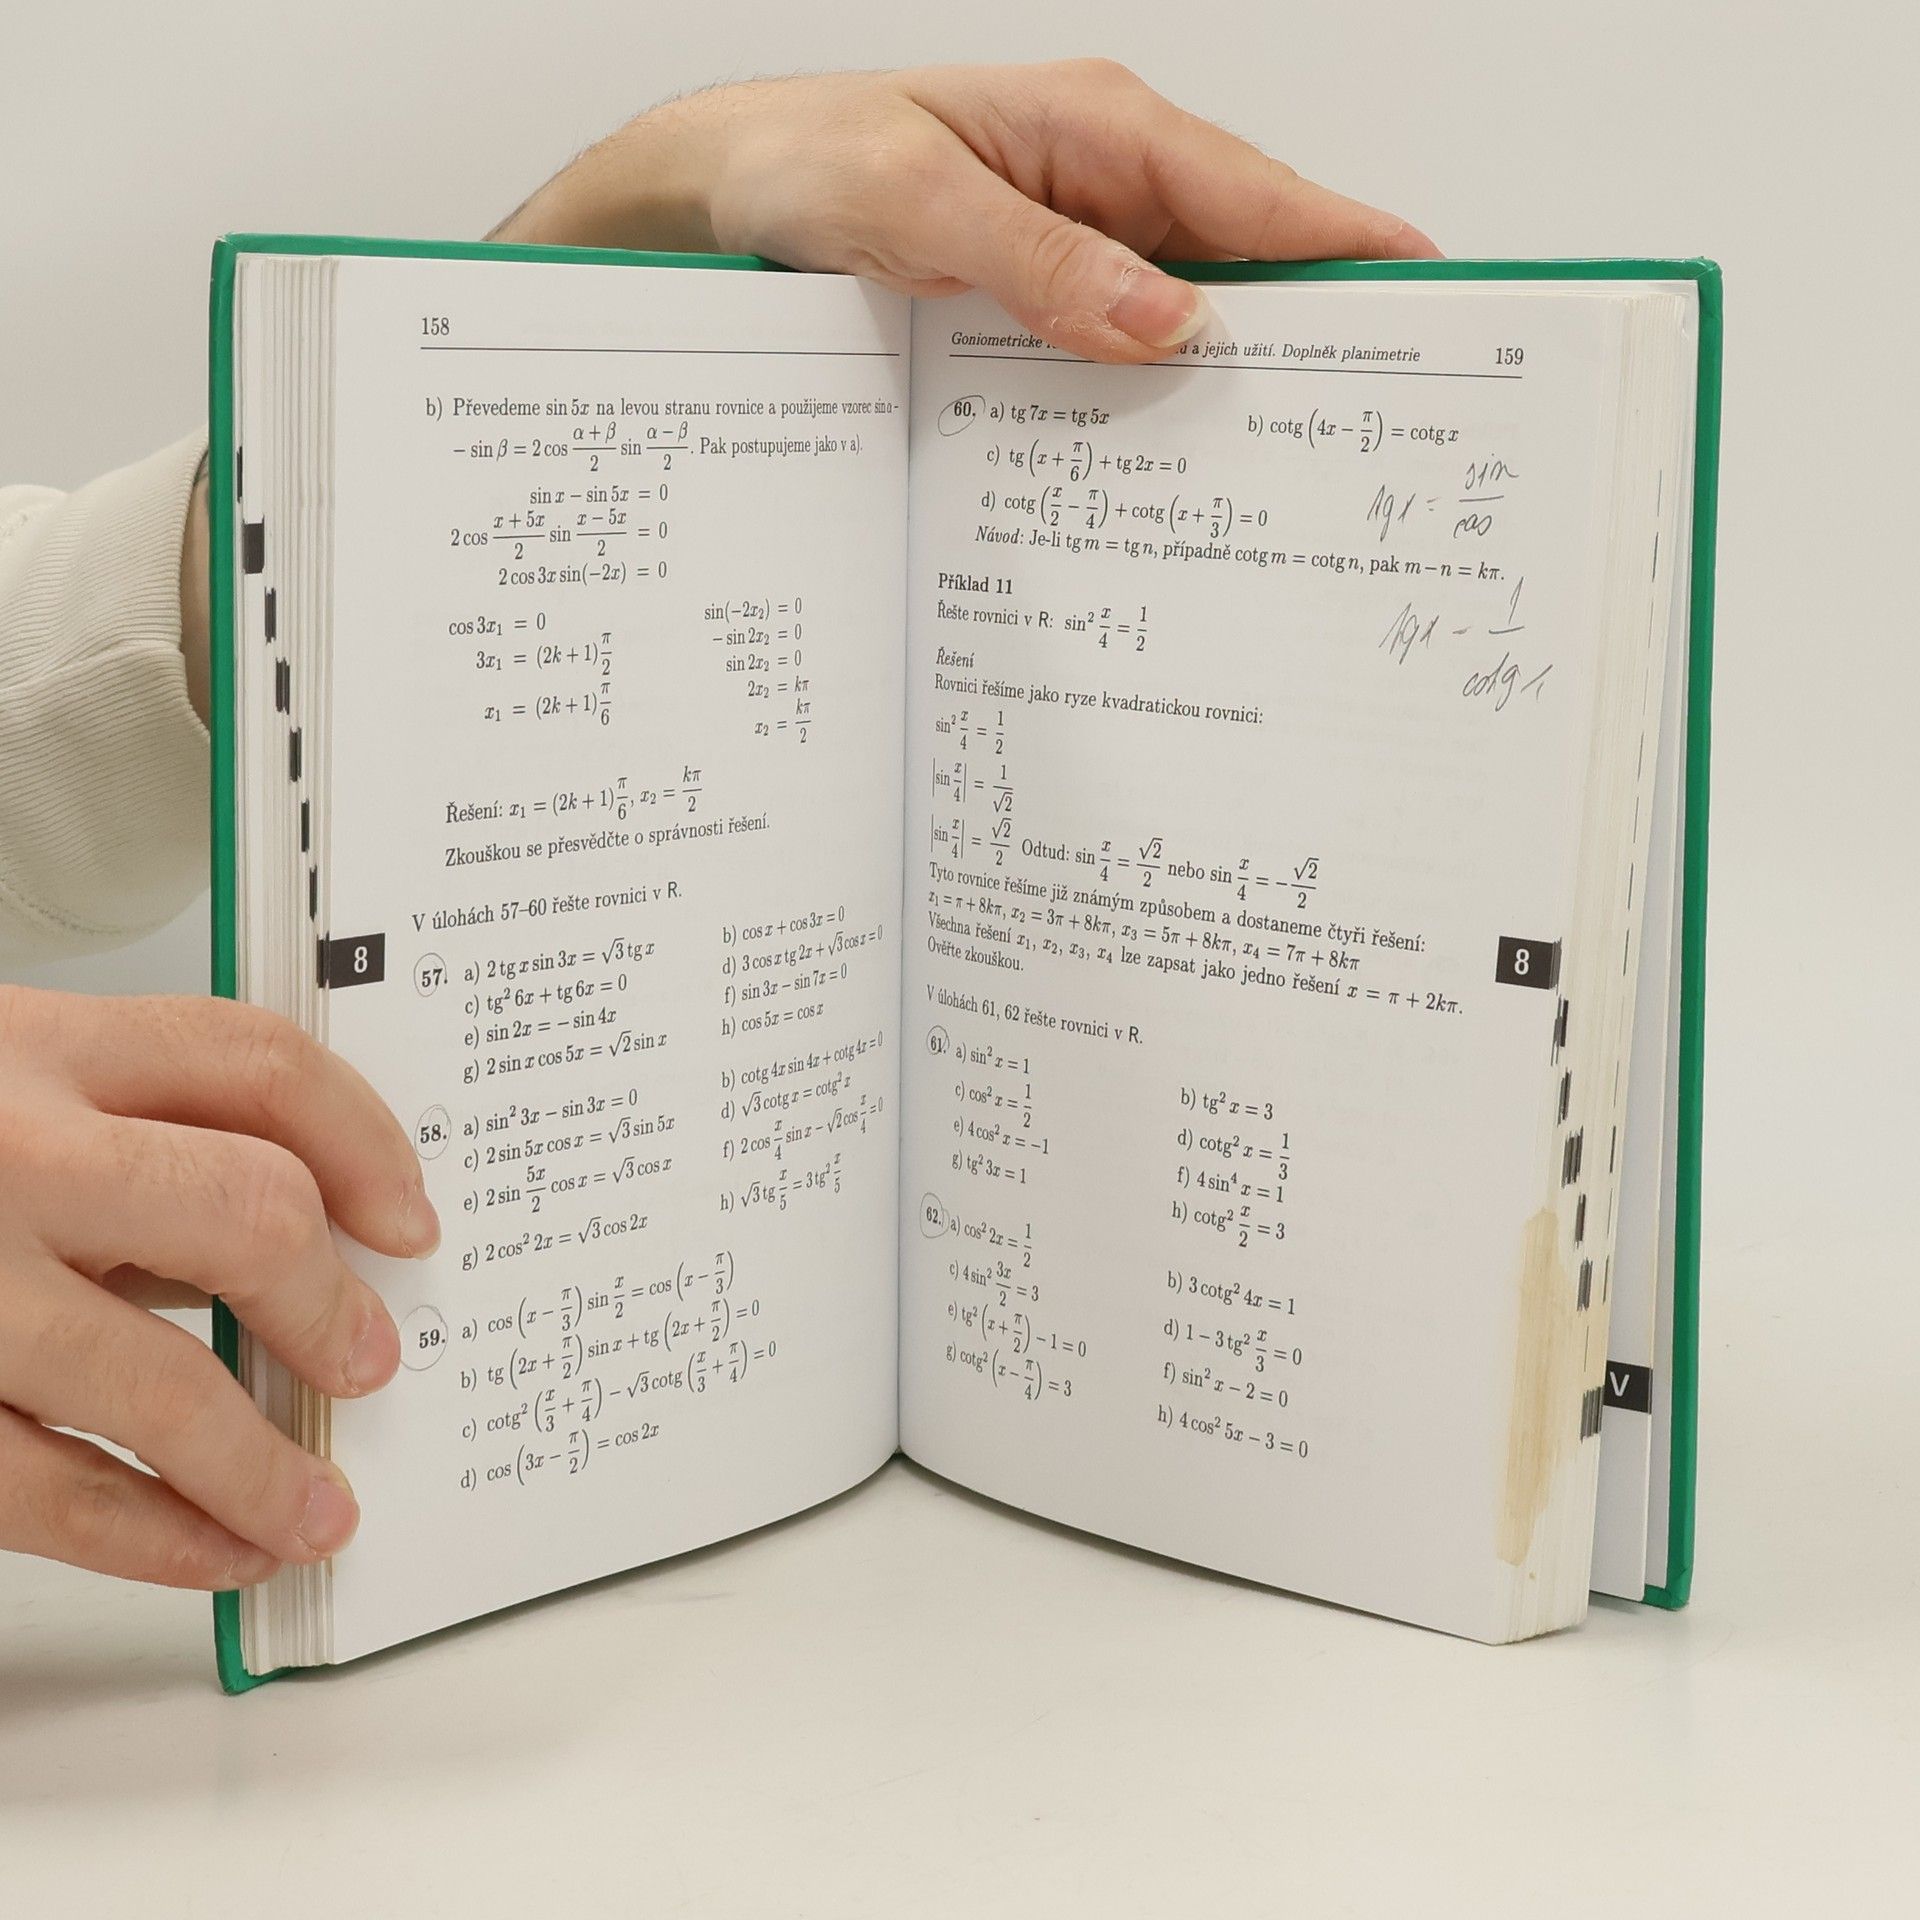 158
b) Převedeme sin 5x na levou stranu rovnice a použijeme vzorec sin α −
− sin β = 2 cos (α + β)/2 sin (α − β)/2. Pak postupujeme jako v a).
sin x − sin 5x = 0
2 cos (x + 5x)/2 sin (x − 5x)/2 = 0
2 cos 3x sin(−2x) = 0
cos 3x₁ = 0
3x₁ = (2k + 1) π/2
x₁ = (2k + 1) π/6
sin(−2x₂) = 0
− sin 2x₂ = 0
sin 2x₂ = 0
2x₂ = kπ
x₂ = kπ/2
Řešení: x₁ = (2k + 1) π/6, x₂ = kπ/2
Zkouškou se přesvědčte o správnosti řešení.
V úlohách 57–60 řešte rovnici v R.
8
57. a) 2 tg x sin 3x = √3 tg x b) cos x + cos 3x = 0
c) tg² 6x + tg 6x = 0 d) 3 cos x tg 2x + √3 cos x = 0
e) sin 2x = − sin 4x f) sin 3x − sin 7x = 0
g) 2 sin x cos 5x = √2 sin x h) cos 5x = cos x
58. a) sin² 3x − sin 3x = 0 b) cotg 4x sin 4x + cotg 4x = 0
c) 2 sin 5x cos x = √3 sin 5x d) √3 cotg x = cotg² x
e) 2 sin 5x/2 cos x = √3 cos x f) 2 cos x/4 sin x − √2 cos x/4 = 0
g) 2 cos² 2x = √3 cos 2x h) √3 tg x/5 = 3 tg² x/5
59. a) cos (x − π/3) sin x/2 = cos (x − π/3)
b) tg (2x + π/2) sin x + tg (2x + π/2) = 0
c) cotg² (x/3 + π/4) − √3 cotg (x/3 + π/4) = 0
d) cos (3x − π/2) = cos 2x
Goniometrické a jejich užití. Doplněk planimetrie 159
60. a) tg 7x = tg 5x b) cotg (4x − π/2) = cotg x
c) tg (x + π/6) + tg 2x = 0
d) cotg (x/2 − π/4) + cotg (x + π/3) = 0
tgx = sin/cos
Návod: Je-li tg m = tg n, případně cotg m = cotg n, pak m − n = kπ.
Příklad 11
Řešte rovnici v R: sin² x/4 = 1/2
tgx = 1/cotg x
Řešení
Rovnici řešíme jako ryze kvadratickou rovnici:
sin² x/4 = 1/2
|sin x/4| = 1/√2
|sin x/4| = √2/2 Odtud: sin x/4 = √2/2 nebo sin x/4 = −√2/2
Tyto rovnice řešíme již známým způsobem a dostaneme čtyři řešení:
x₁ = π + 8kπ, x₂ = 3π + 8kπ, x₃ = 5π + 8kπ, x₄ = 7π + 8kπ
Všechna řešení x₁, x₂, x₃, x₄ lze zapsat jako jedno řešení x = π + 2kπ.
Ověřte zkouškou.
8
V úlohách 61, 62 řešte rovnici v R.
61. a) sin² x = 1 b) tg² x = 3
c) cos² x = 1/2 d) cotg² x = 1/3
e) 4 cos² x = −1 f) 4 sin⁴ x = 1
g) tg² 3x = 1 h) cotg² x/2 = 3
62. a) cos² 2x = 1/2 b) 3 cotg² 4x = 1
c) 4 sin² 3x/2 = 3 d) 1 − 3 tg² x/3 = 0
e) tg² (x + π/2) − 1 = 0 f) sin² x − 2 = 0
g) cotg² (x − π/4) = 3 h) 4 cos² 5x − 3 = 0
V